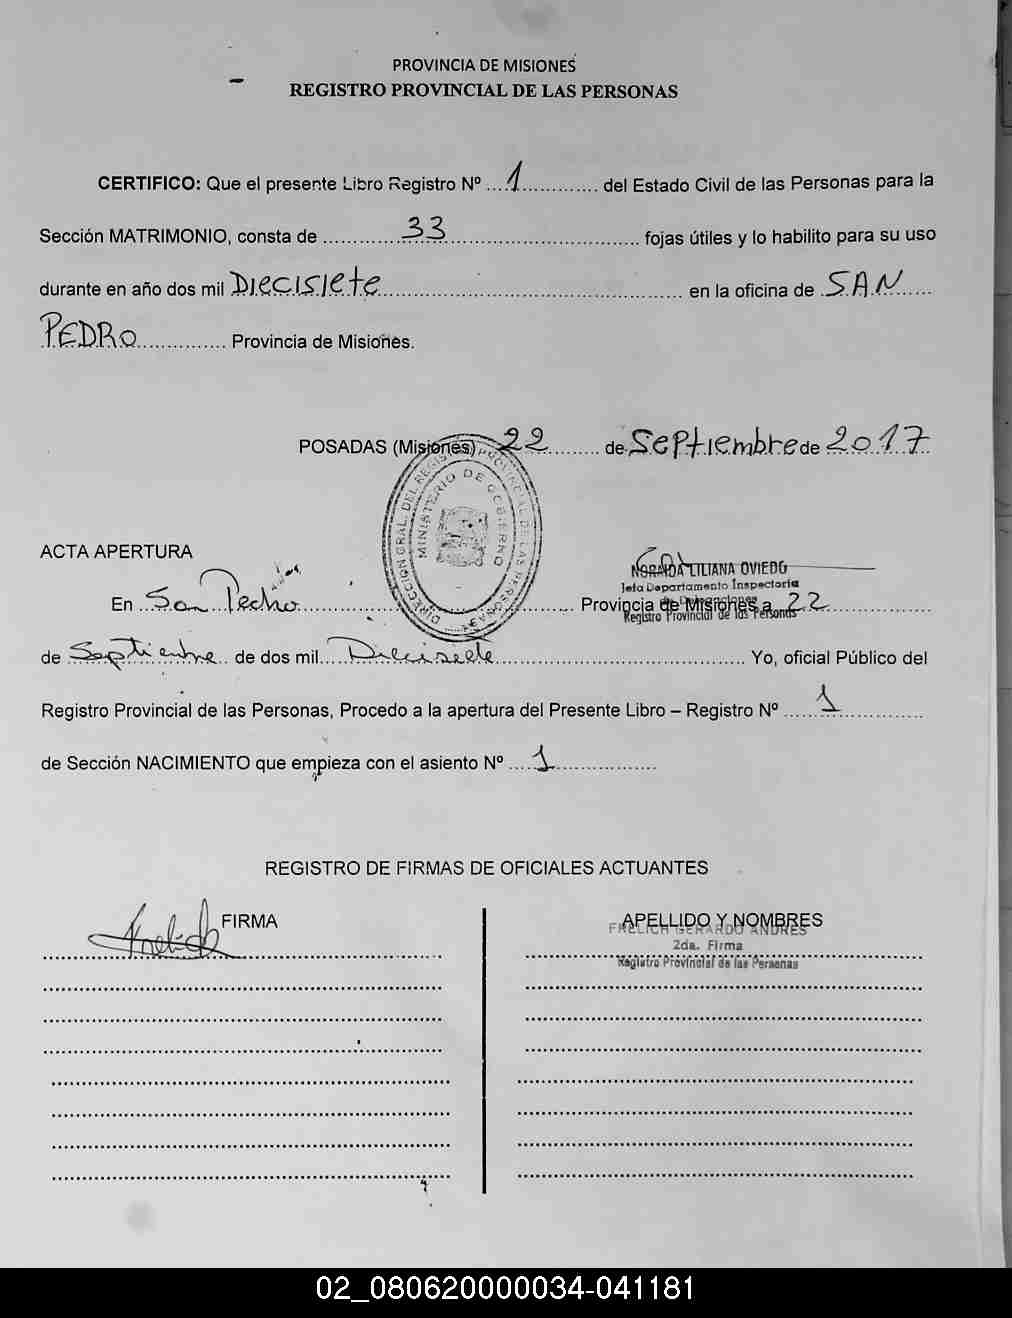 PROVINCIA DE MISIONES
REGISTRO PROVINCIAL DE LAS PERSONAS
CERTIFICO: Que el presente Libro Registro Nº ....1............. del Estado Civil de las Personas para la
Sección MATRIMONIO, consta de ..............33.................................. fojas útiles y lo habilito para su uso
durante en año dos mil Diecisiete.................................................... en la oficina de .SAN......
PEDRO................ Provincia de Misiones.
POSADAS (Misiones) 22.......... de Septiembre de 2017
DIRECCION GRAL. DEL REGISTRO PROVINCIAL DE LAS PERSONAS
MINISTERIO DE GOBIERNO
ACTA APERTURA
LILIANA OVIEDO
Jefa Departamento Inspectoria
Registro Provincial de las Personas
En ..San Pedro.................................................... Provincia de Misiones a 22..................
de Septiembre de dos mil....Diecisiete.......................................... Yo, oficial Público del
Registro Provincial de las Personas, Procedo a la apertura del Presente Libro – Registro Nº ......1...............
de Sección NACIMIENTO que empieza con el asiento Nº ....1...................
REGISTRO DE FIRMAS DE OFICIALES ACTUANTES
FIRMA APELLIDO Y NOMBRES
FRELICH GERARDO ANDRES
2da. Firma
Registro Provincial de las Personas
02_080620000034-041181